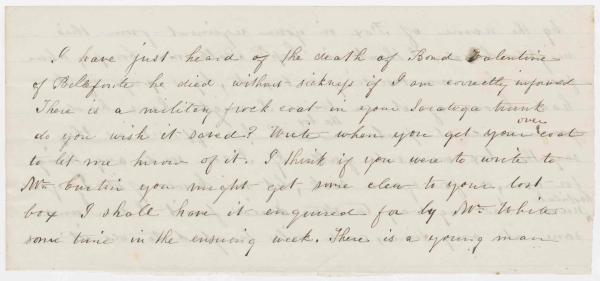 I have just heard of the death of Bond Valentine
of Bellefonte he died without sickness if I am correctly informed
There is a military frock coat in your Saratoga trunk
do you wish it saved? Write when you get your over coat
to let me know of it. I think if you were to write to
Mr. Curtin you might get some clew to your lost
box I shall have it enquired for by Mr. White
some time in the ensuing week. There is a young man